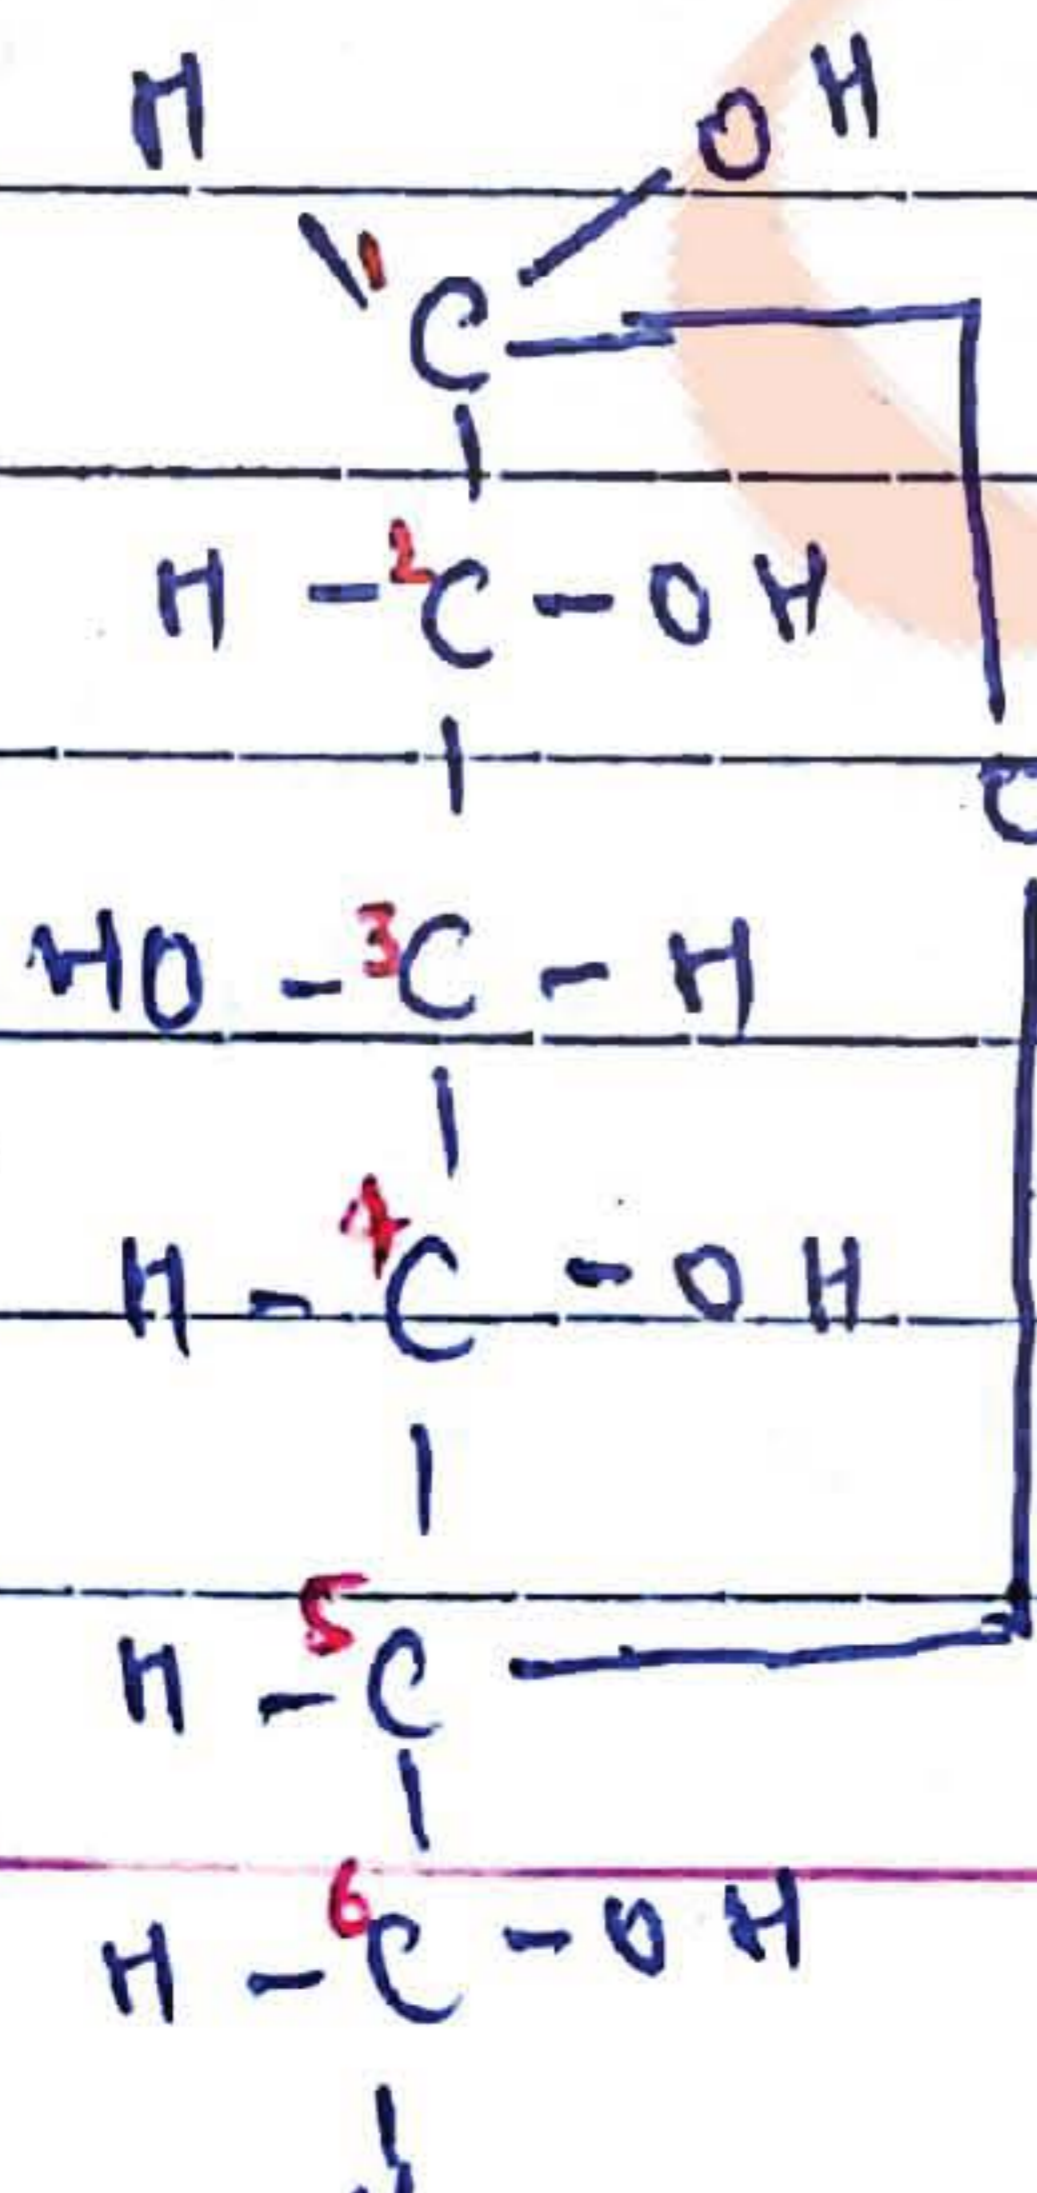 H OH
1 C
H - 2 C - OH
O
HO - 3 C - H
H - 4 C - OH
H - 5 C
H - 6 C - OH